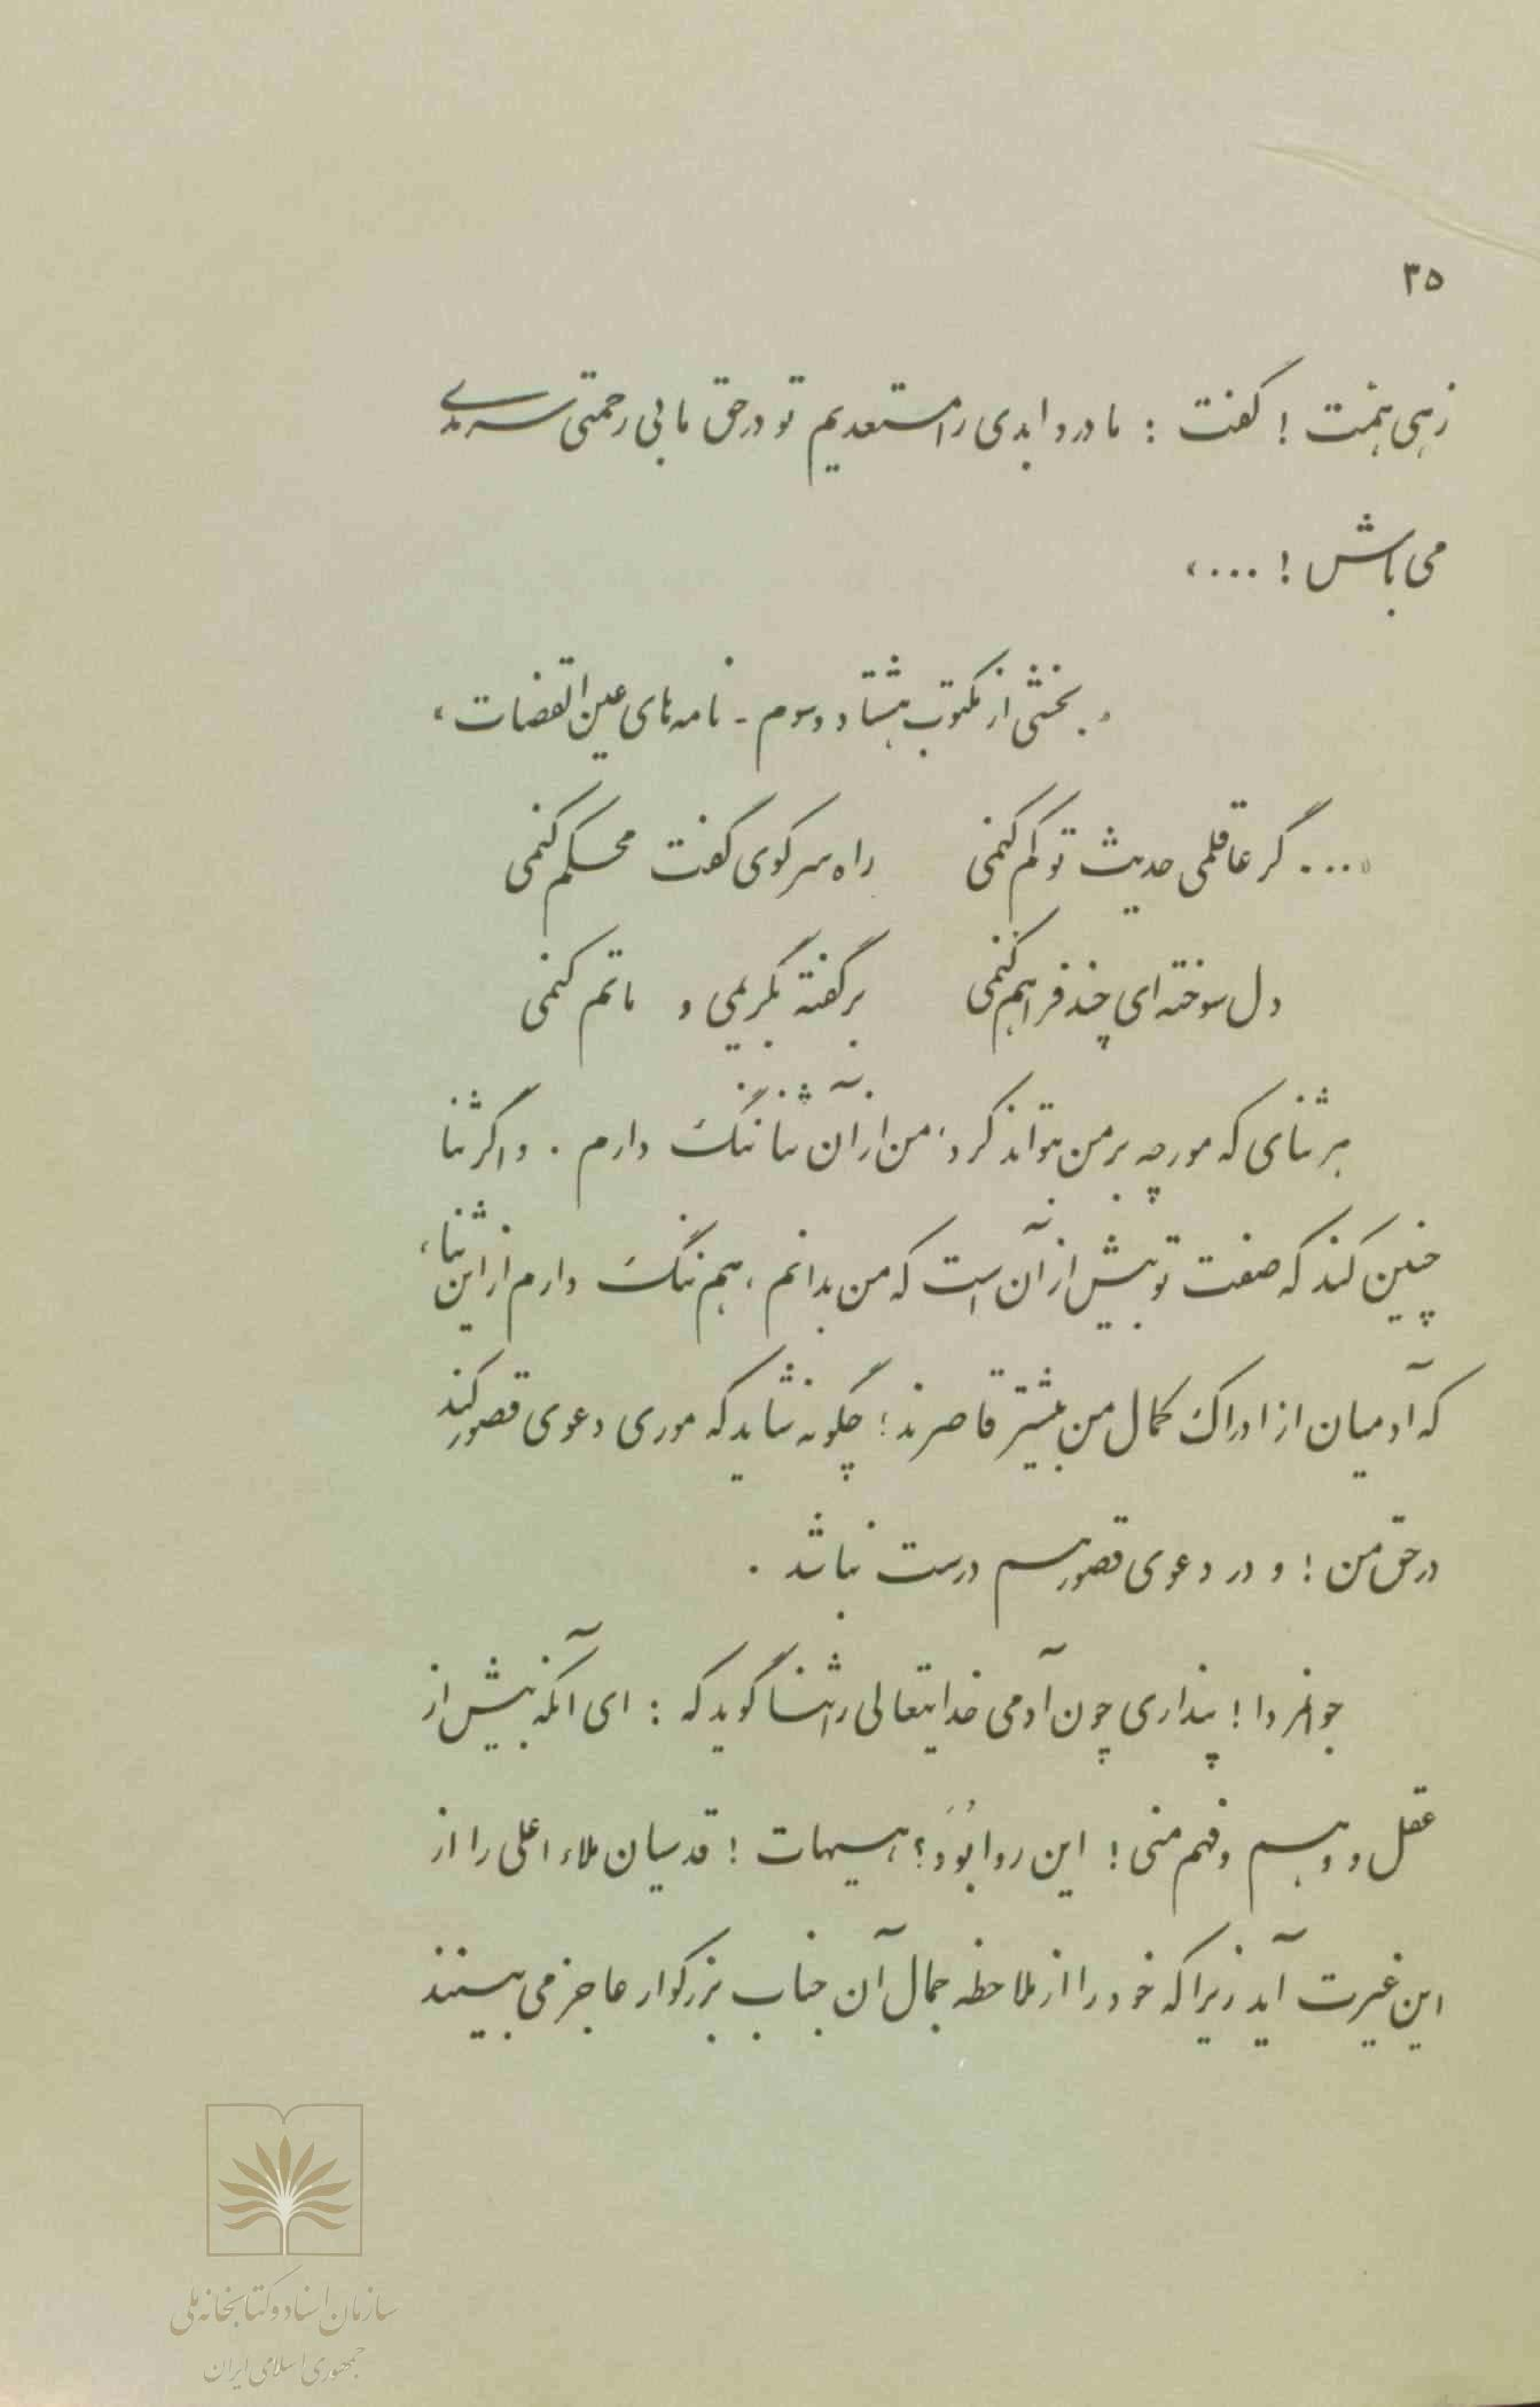 ۳۵
زهی همت ! گفت : ما درد ابدی را مستعدیم تو در حق ما بی رحمتی سرمدی
می باش ! ...»
«بخشی از مکتوب هشتاد و سوم - نامه های عین القضات»
«... گر عاقلمی حدیث تو کم کنمی    راه سر کوی گفت محکم کنمی
دل سوخته ای چند فراهم کنمی    برگفته بگریمی و ماتم کنمی
هر ثنای که مورچه بر من تواند کرد، من از آن ثنا ننگ دارم . و اگر ثنا
چنین کند که صفت تو بیش از آن است که من بدانم ، هم ننگ دارم از این ثنا،
که آدمیان از ادراک کمال من بیشتر قاصرند ؛ چگونه شاید که موری دعوی قصور کند
در حق من ؛ و در دعوی قصور هم درست نباشد .
جوانمردا ! پنداری چون آدمی خدایتعالی را ثنا گوید که : ای آنکه بیش از
عقل و وهم و فهم منی ! این روا بُوَد؟ هیهات ! قدسیان ملاء اعلی را از
این غیرت آید زیرا که خود را از ملاحظه جمال آن جناب بزرگوار عاجز می بینند
سازمان اسناد و کتابخانه ملی
جمهوری اسلامی ایران